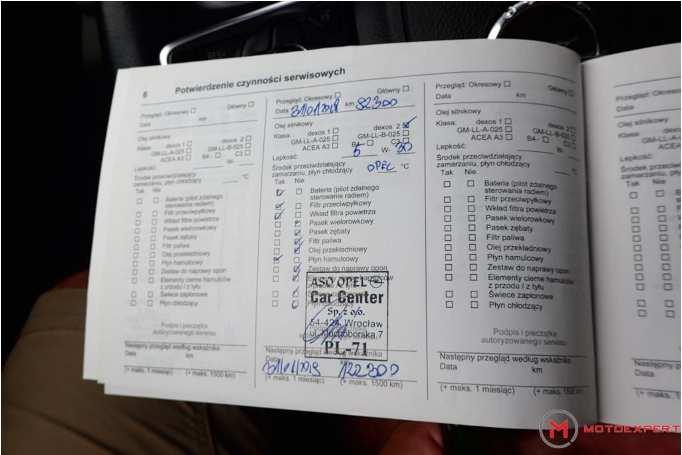 6 Potwierdzenie czynności serwisowych
Przegląd: Okresowy Główny
Data km
Olej silnikowy
Klasa: dexos 1 dexos 2
GM-LL-A-025 GM-LL-B-025
ACEA A3 B4 - C3
Lepkość:
Środek przeciwdziałający
zamarzaniu, płyn chłodzący °C
Tak Nie
Bateria (pilot zdalnego
sterowania radiem)
Filtr przeciwpyłkowy
Wkład filtra powietrza
Pasek wielorowkowy
Pasek zębaty
Filtr paliwa
Olej przekładniowy
Płyn hamulcowy
Zestaw do naprawy opon
Elementy cierne hamulców
z przodu i z tyłu
Świece zapłonowe
Płyn chłodzący
Podpis i pieczątka
autoryzowanego serwisu
Następny przegląd według wskaźnika
Data km
(+ maks. 1 miesiąc) (+ maks. 1500 km)
Przegląd: Okresowy Główny
Data 31/01/2018 km 92300
Olej silnikowy
Klasa: dexos 1 dexos 2
GM-LL-A-025 GM-LL-B-025
ACEA A3 B4 - C3
Lepkość: 5 W- 30
Środek przeciwdziałający
zamarzaniu, płyn chłodzący OPEL °C
Tak Nie
Bateria (pilot zdalnego
sterowania radiem)
Filtr przeciwpyłkowy
Wkład filtra powietrza
Pasek wielorowkowy
Pasek zębaty
Filtr paliwa
Olej przekładniowy
Płyn hamulcowy
Zestaw do naprawy opon
ASO OPEL
Car Center
Sp. z o.o.
Wrocław
PL-71
Następny przegląd według wskaźnika
31/01/2019 122300
(+ maks. 1 miesiąc) (+ maks. 1500 km)
Przegląd: Okresowy Główny
Data km
Olej silnikowy
Klasa: dexos 1 dexos 2
GM-LL-A-025 GM-LL-B-025
ACEA A3 B4 - C3
Lepkość: W-
Środek przeciwdziałający
zamarzaniu, płyn chłodzący °C
Tak Nie
Bateria (pilot zdalnego
sterowania radiem)
Filtr przeciwpyłkowy
Wkład filtra powietrza
Pasek wielorowkowy
Pasek zębaty
Filtr paliwa
Olej przekładniowy
Płyn hamulcowy
Zestaw do naprawy opon
Elementy cierne hamulców
z przodu i z tyłu
Świece zapłonowe
Płyn chłodzący
Podpis i pieczątka
autoryzowanego serwisu
Następny przegląd według wskaźnika
Data km
(+ maks. 1 miesiąc) (+ maks. 1500 km)
Przegląd: Okresowy
Data
Olej silnikowy
Klasa:
Lepkość:
Tak
MOTOEXPERT